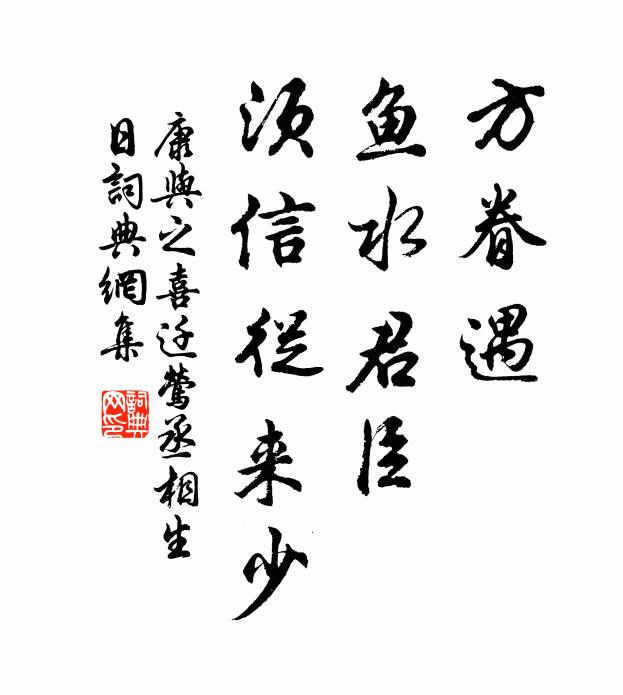 方眷遇
鱼水君臣
须信從来少
康與之喜迁鶯丞相生
日詞典網集
詞典网印